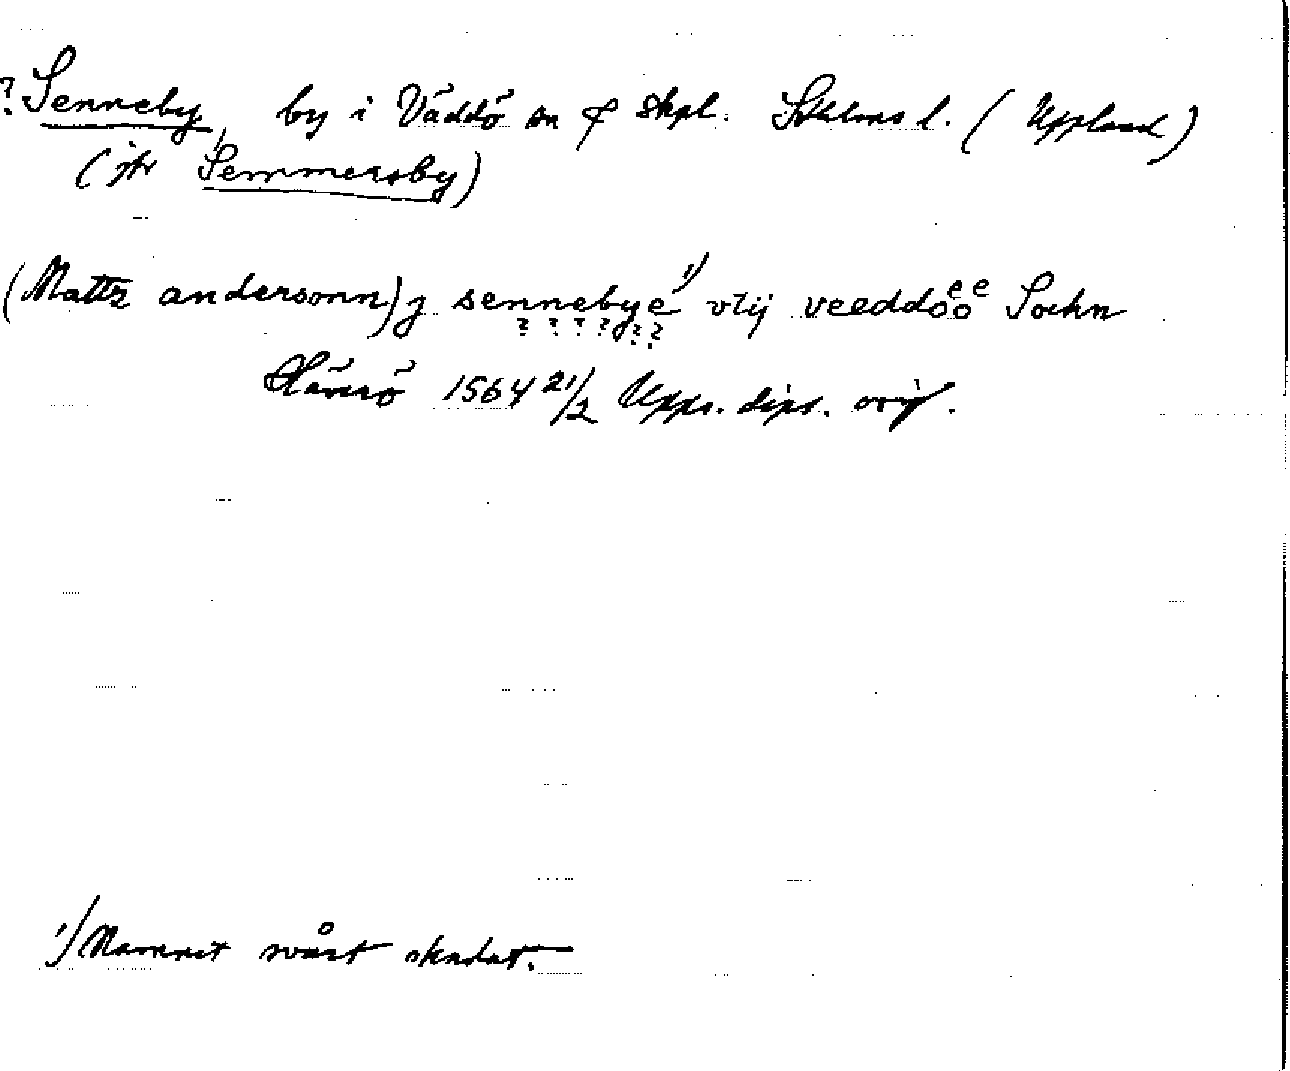 ? Senneby, by i Väddö sn & skpl. Sthlms l. (Uppland)
(jfr Semmersby)
(Mattz andersonn) j sennebye ¹⁾ vtij veeddöö Sochn
? ? ? ? ? ?
Häverö 1564 21/2 Upps. dipl. orig.
¹⁾ Namnet svårt skadat.